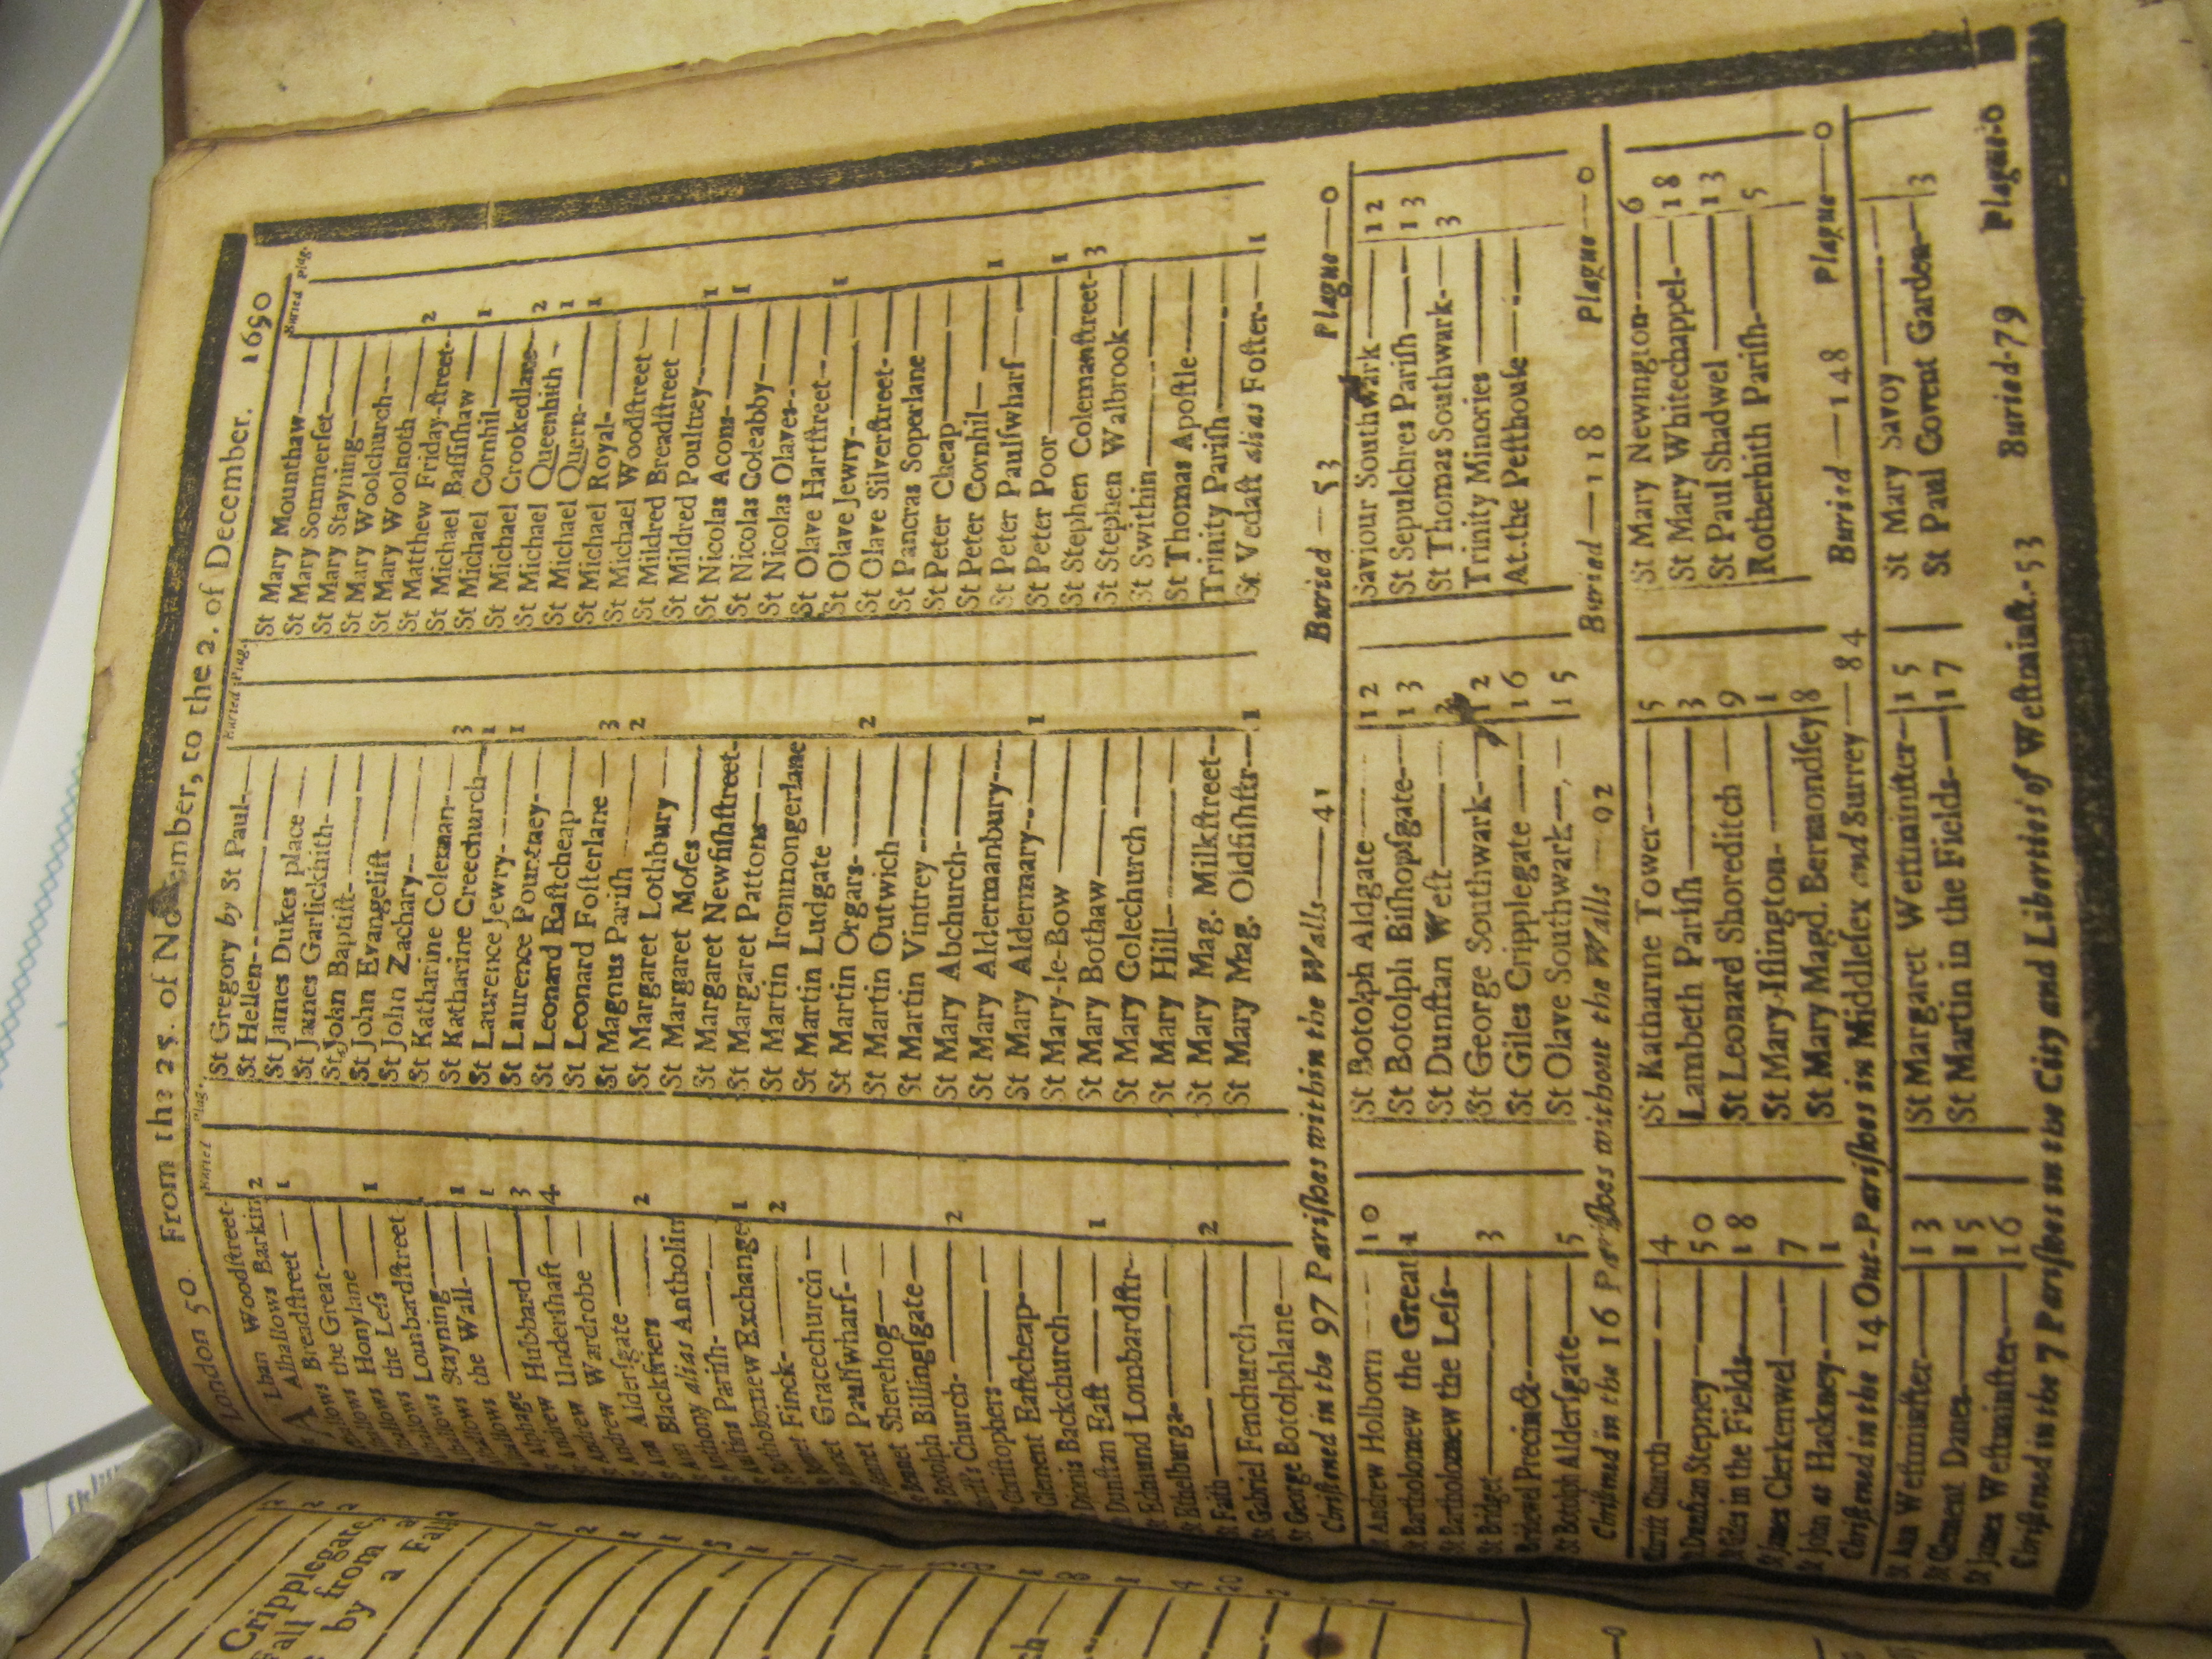 London 50 From the 25. of November, to the 2. of December. 1690
Buried Plag.
Lban Woodſtreet-
Alhallows Barkin 2
Breadſtreet 1
the Great
Honylane
the Leſs 1
Lombardſtreet
Stayning
the Wall 1
Alphage 1
Andrew Hubbard 3
Andrew Underſhaft 4
Andrew Wardrobe
Ann Alderſgate
Ann Blackfriers 2
Anthony alias Antholin
Auſtins Pariſh
Bartholomew Exchange 1
Bennet Finck 2
Bennet Gracechurch
Bennet Paulſwharf
Bennet Sherehog
Botolph Billingſgate
Church 2
Chriſtophers
Clement Eaſtcheap
Dionis Backchurch
St Dunſtan Eaſt 1
St Edmund Lombardſtr
St Ethelburga
St Faith 2
St Gabriel Fenchurch
St George Botolphlane
Buried Plag.
St Gregory by St Paul
St Hellen
St James Dukes place
St James Garlickhith
St John Baptiſt
St John Evangeliſt
St John Zachary
St Katharine Coleman 3
St Katharine Creechurch 1
St Laurence Jewry 1
St Laurence Pountney
St Leonard Eaſtcheap
St Leonard Foſterlane 3
St Magnus Pariſh 2
St Margaret Lothbury
St Margaret Moſes
St Margaret Newfiſhſtreet
St Margaret Pattons
St Martin Ironmongerlane
St Martin Ludgate
St Martin Orgars 2
St Martin Outwich
St Martin Vintrey
St Mary Abchurch
St Mary Aldermanbury
St Mary Aldermary 1
St Mary-le-Bow
St Mary Bothaw
St Mary Colechurch
St Mary Hill
St Mary Mag. Milkſtreet
St Mary Mag. Oldfiſhſtr 1
Buried Plag.
St Mary Mounthaw
St Mary Sommerſet
St Mary Stayning
St Mary Woolchurch
St Mary Woolnoth 2
St Matthew Friday-ſtreet
St Michael Baſſiſhaw 1
St Michael Cornhil
St Michael Crookedlane 2
St Michael Queenhith 1
St Michael Quern 1
St Michael Royal
St Michael Woodſtreet
St Mildred Breadſtreet
St Mildred Poultney 1
St Nicolas Acons 1
St Nicolas Coleabby
St Nicolas Olaves
St Olave Hartſtreet 1
St Olave Jewry
St Olave Silverſtreet
St Pancras Soperlane
St Peter Cheap
St Peter Cornhil 1
St Peter Paulſwharf
St Peter Poor 1
St Stephen Colemanſtreet 3
St Stephen Walbrook
St Swithin
St Thomas Apoſtle
Trinity Pariſh
St Vedaſt alias Foſter 1
Chriſtened in the 97 Pariſhes within the Walls 41 Buried 53 Plague 0
St Andrew Holborn 10
St Bartholomew the Great 1
St Bartholomew the Leſs
St Bridget 3
Bridewel Precinct
St Botolph Alderſgate 5
St Botolph Aldgate 12
St Botolph Biſhopſgate 13
St Dunſtan Weſt 2
St George Southwark 12
St Giles Cripplegate 16
St Olave Southwark 15
Saviour Southwark 12
St Sepulchres Pariſh 13
St Thomas Southwark 3
Trinity Minories
At the Peſthouſe
Chriſtened in the 16 Pariſhes without the Walls 92 Buried 118 Plague 0
Chriſt Church 4
St Dunſtan Stepney 50
St Giles in the Fields 18
St James Clerkenwel 7
St John at Hackney 1
St Katharine Tower 5
Lambeth Pariſh 3
St Leonard Shoreditch 9
St Mary Iſlington 1
St Mary Magd. Bermondſey 8
St Mary Newington 6
St Mary Whitechappel 18
St Paul Shadwel 13
Rotherhith Pariſh 5
Chriſtened in the 14 Out-Pariſhes in Middleſex and Surrey 84 Buried 148 Plague 0
St Ann Weſtminſter 13
St Clement Danes 15
St James Weſtminſter 16
St Margaret Weſtminſter 15
St Martin in the Fields 17
St Mary Savoy
St Paul Covent Garden 3
Chriſtened in the 7 Pariſhes in the City and Liberties of Weſtminſt. 53 Buried 79 Plague 0
Cripplegate,
from a
by a Fall